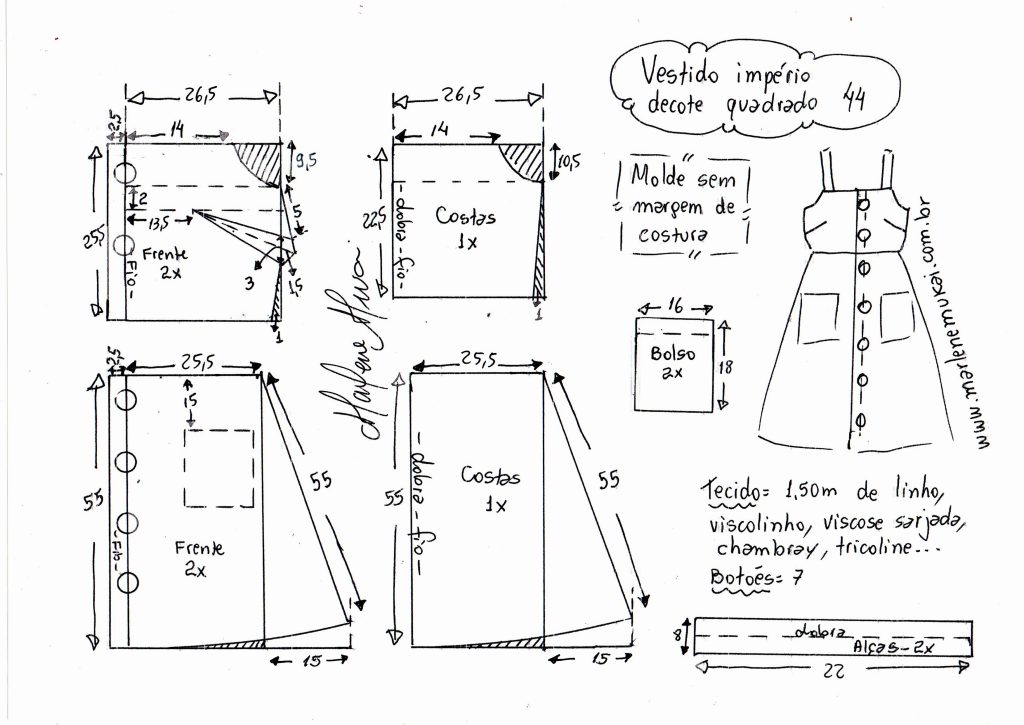 Vestido império
decote quadrado 44
26,5
2,5
14
9,5
25,5
2
13,5
5
3
1,5
1
Frente
2x
Fio
26,5
14
10,5
22,5
dobra - fio
Costas
1x
1
Molde sem
margem de
costura
Marlene Mukai
www.marlenemukai.com.br
16
Bolso
2x
18
2,5
25,5
15
55
55
Frente
2x
Fio
15
25,5
55
dobra - fio
Costas
1x
55
15
Tecido= 1,50m de linho,
viscolinho, viscose sarjada,
chambray, tricoline...
Botões= 7
8
dobra
Alças - 2x
22